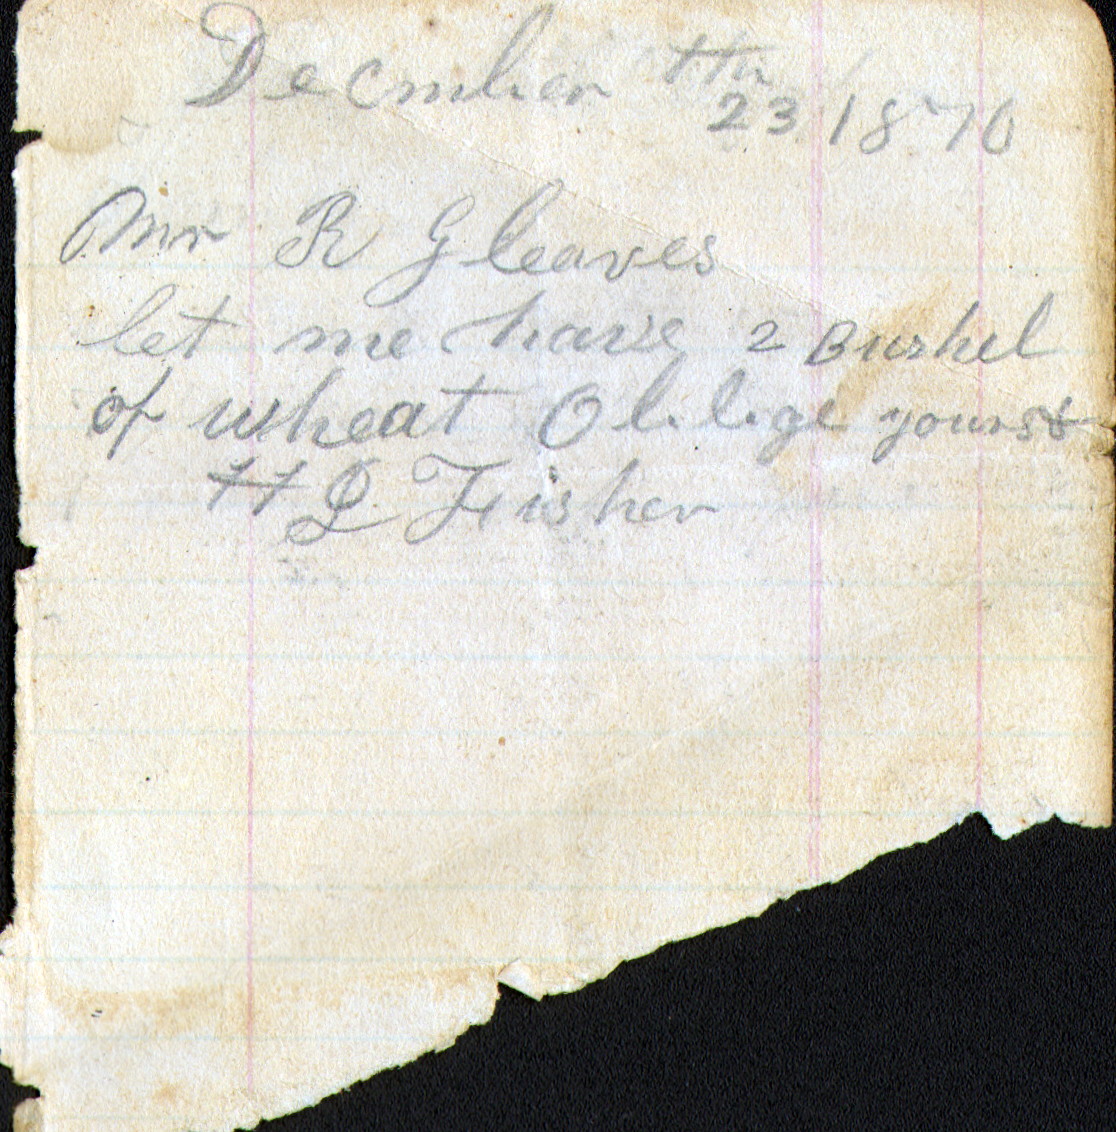 Decmber the
23 1870
Mr R Gleaves
let me have 2 Bushel
of wheat Oblige yours &
H L Fisher